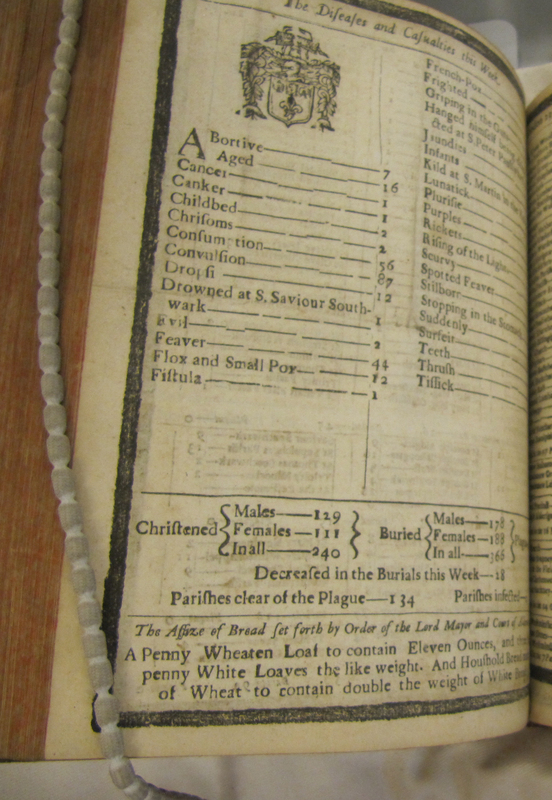 The Diſeaſes and Caſualties this Week.
ABortive——7
Aged——16
Cancer——1
Canker——1
Childbed——2
Chriſoms——2
Conſumption——56
Convulſion——87
Dropſi——12
Drowned at S. Saviour South-
wark——1
Evil——2
Feaver——44
Flox and Small Pox——12
Fiſtula——1
French-Pox
Frighted
Griping in the Guts
Hanged himſelf
cted at S. Peter
Jaundies
Infants
Kild at S. Martin in the
Lunatick
Pluriſie
Purples
Rickets
Riſing of the Lights
Scurvy
Spotted Feaver
Stilborn
Stopping in the Stomach
Suddenly
Surfeit
Teeth
Thruſh
Tiſſick
Chriſtened
Males——129
Females——111
In all——240
Buried
Males——178
Females——188
In all——366
Plague
Decreaſed in the Burials this Week—18
Pariſhes clear of the Plague—134 Pariſhes infected
The Aſſize of Bread ſet forth by Order of the Lord Mayor and Court of
A Penny Wheaten Loaf to contain Eleven Ounces, and three
penny White Loaves the like weight. And Houſhold Bread
of Wheat to contain double the weight of White